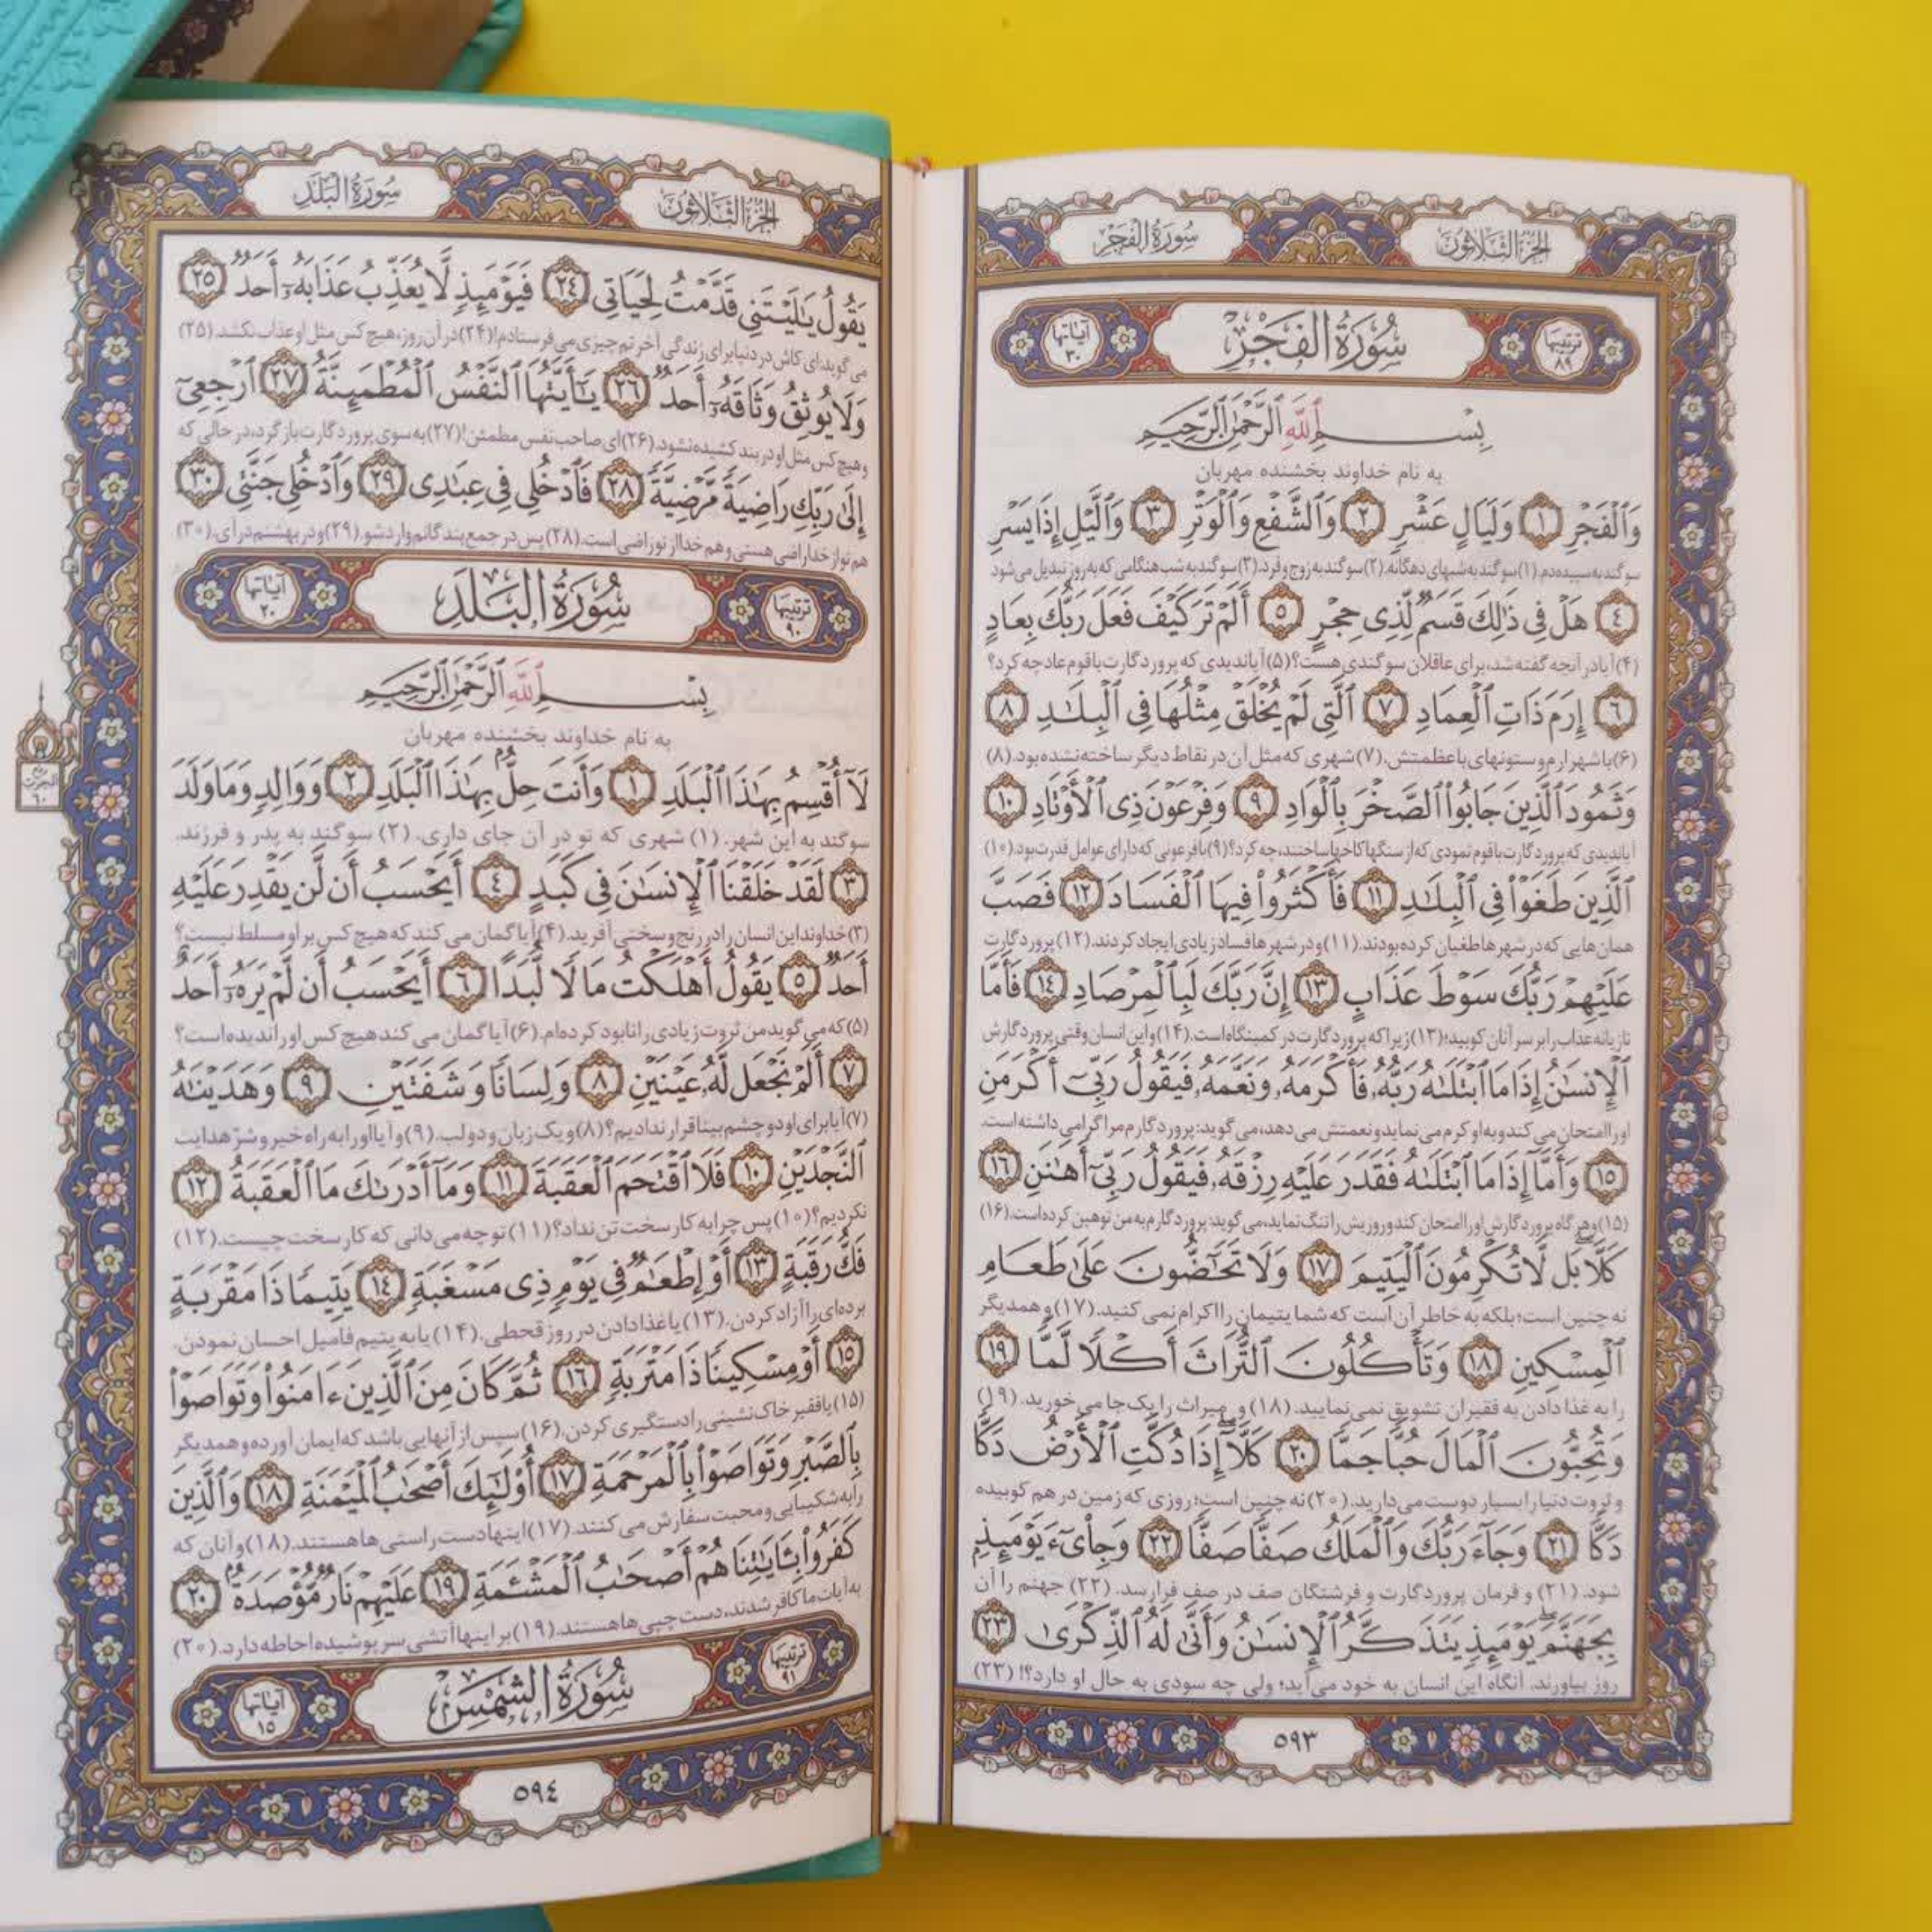 الجزء الثلاثون
سورة الفجر
ترتیبها ٨٩
سُورَةُ الفَجْرِ
آیاتها ٣٠
بِسْمِ ٱللَّهِ ٱلرَّحْمَٰنِ ٱلرَّحِيمِ
به نام خداوند بخشنده مهربان
وَٱلْفَجْرِ ١ وَلَيَالٍ عَشْرٍ ٢ وَٱلشَّفْعِ وَٱلْوَتْرِ ٣ وَٱلَّيْلِ إِذَا يَسْرِ
سوگند به سپیده‌دم. (۱) سوگند به شبهای دهگانه. (۲) سوگند به زوج و فرد. (۳) سوگند به شب هنگامی که به روز تبدیل می‌شود
٤ هَلْ فِى ذَٰلِكَ قَسَمٌ لِّذِى حِجْرٍ ٥ أَلَمْ تَرَ كَيْفَ فَعَلَ رَبُّكَ بِعَادٍ
(۴) آیا در آنچه گفته شد، برای عاقلان سوگندی هست؟ (۵) آیا ندیدی که پروردگارت با قوم عاد چه کرد؟
٦ إِرَمَ ذَاتِ ٱلْعِمَادِ ٧ ٱلَّتِى لَمْ يُخْلَقْ مِثْلُهَا فِى ٱلْبِلَٰدِ ٨
(۶) با شهر ارم و ستونهای باعظمتش، (۷) شهری که مثل آن در نقاط دیگر ساخته نشده بود. (۸)
وَثَمُودَ ٱلَّذِينَ جَابُوا۟ ٱلصَّخْرَ بِٱلْوَادِ ٩ وَفِرْعَوْنَ ذِى ٱلْأَوْتَادِ ١٠
آیا ندیدی که پروردگارت با قوم ثمودی که از سنگها کاخها ساختند، چه کرد؟ (۹) با فرعونی که دارای عوامل قدرت بود. (۱۰)
ٱلَّذِينَ طَغَوْا۟ فِى ٱلْبِلَٰدِ ١١ فَأَكْثَرُوا۟ فِيهَا ٱلْفَسَادَ ١٢ فَصَبَّ
همان هایی که در شهرها طغیان کرده بودند. (۱۱) و در شهرها فساد زیادی ایجاد کردند. (۱۲) پروردگارت
عَلَيْهِمْ رَبُّكَ سَوْطَ عَذَابٍ ١٣ إِنَّ رَبَّكَ لَبِٱلْمِرْصَادِ ١٤ فَأَمَّا
تازیانه عذاب را بر سر آنان کوبید؛ (۱۳) زیرا که پروردگارت در کمینگاه است. (۱۴) و این انسان وقتی پروردگارش
ٱلْإِنسَٰنُ إِذَا مَا ٱبْتَلَىٰهُ رَبُّهُۥ فَأَكْرَمَهُۥ وَنَعَّمَهُۥ فَيَقُولُ رَبِّىٓ أَكْرَمَنِ
او را امتحان می‌کند و به او کرم می‌نماید و نعمتش می‌دهد، می‌گوید: پروردگارم مرا گرامی داشته است.
١٥ وَأَمَّآ إِذَا مَا ٱبْتَلَىٰهُ فَقَدَرَ عَلَيْهِ رِزْقَهُۥ فَيَقُولُ رَبِّىٓ أَهَٰنَنِ ١٦
(۱۵) و هرگاه پروردگارش او را امتحان کند و روزیش را تنگ نماید، می‌گوید: پروردگارم به من توهین کرده است. (۱۶)
كَلَّا بَل لَّا تُكْرِمُونَ ٱلْيَتِيمَ ١٧ وَلَا تَحَٰٓضُّونَ عَلَىٰ طَعَامِ
نه چنین است؛ بلکه به خاطر آن است که شما یتیمان را اکرام نمی کنید. (۱۷) و همدیگر
ٱلْمِسْكِينِ ١٨ وَتَأْكُلُونَ ٱلتُّرَاثَ أَكْلًا لَّمًّا ١٩
را به غذا دادن به فقیران تشویق نمی نمایید. (۱۸) و میراث را یک جا می خورید. (۱۹)
وَتُحِبُّونَ ٱلْمَالَ حُبًّا جَمًّا ٢٠ كَلَّآ إِذَا دُكَّتِ ٱلْأَرْضُ دَكًّا
و ثروت دنیا را بسیار دوست می دارید. (۲۰) نه چنین است؛ روزی که زمین در هم کوبیده
دَكًّا ٢١ وَجَآءَ رَبُّكَ وَٱلْمَلَكُ صَفًّا صَفًّا ٢٢ وَجِا۟ىٓءَ يَوْمَئِذٍۭ
شود. (۲۱) و فرمان پروردگارت و فرشتگان صف در صف فرا رسد. (۲۲) جهنم را آن
بِجَهَنَّمَ يَوْمَئِذٍ يَتَذَكَّرُ ٱلْإِنسَٰنُ وَأَنَّىٰ لَهُ ٱلذِّكْرَىٰ ٢٣
روز بیاورند. آنگاه این انسان به خود می آید؛ ولی چه سودی به حال او دارد؟! (۲۳)
٥٩٣
الجزء الثلاثون
سورة البلد
يَقُولُ يَٰلَيْتَنِى قَدَّمْتُ لِحَيَاتِى ٢٤ فَيَوْمَئِذٍ لَّا يُعَذِّبُ عَذَابَهُۥٓ أَحَدٌ ٢٥
می گوید: ای کاش در دنیا برای زندگی آخرتم چیزی می فرستادم! (۲۴) در آن روز، هیچ کس مثل او عذاب نکشد. (۲۵)
وَلَا يُوثِقُ وَثَاقَهُۥٓ أَحَدٌ ٢٦ يَٰٓأَيَّتُهَا ٱلنَّفْسُ ٱلْمُطْمَئِنَّةُ ٢٧ ٱرْجِعِىٓ
و هیچ کس مثل او در بند کشیده نشود. (۲۶) ای صاحب نفس مطمئن! (۲۷) به سوی پروردگارت بازگرد، در حالی که
إِلَىٰ رَبِّكِ رَاضِيَةً مَّرْضِيَّةً ٢٨ فَٱدْخُلِى فِى عِبَٰدِى ٢٩ وَٱدْخُلِى جَنَّتِى ٣٠
هم تو از خدا راضی هستی و هم خدا از تو راضی است. (۲۸) پس در جمع بندگانم وارد شو. (۲۹) و در بهشتم در آی. (۳۰)
ترتیبها ٩٠
سُورَةُ البَلَدِ
آیاتها ٢٠
بِسْمِ ٱللَّهِ ٱلرَّحْمَٰنِ ٱلرَّحِيمِ
به نام خداوند بخشنده مهربان
لَآ أُقْسِمُ بِهَٰذَا ٱلْبَلَدِ ١ وَأَنتَ حِلٌّۢ بِهَٰذَا ٱلْبَلَدِ ٢ وَوَالِدٍ وَمَا وَلَدَ
سوگند به این شهر. (۱) شهری که تو در آن جای داری. (۲) سوگند به پدر و فرزند.
٣ لَقَدْ خَلَقْنَا ٱلْإِنسَٰنَ فِى كَبَدٍ ٤ أَيَحْسَبُ أَن لَّن يَقْدِرَ عَلَيْهِ
(۳) خداوند این انسان را در رنج و سختی آفرید. (۴) آیا گمان می کند که هیچ کس بر او مسلط نیست؟
أَحَدٌ ٥ يَقُولُ أَهْلَكْتُ مَالًا لُّبَدًا ٦ أَيَحْسَبُ أَن لَّمْ يَرَهُۥٓ أَحَدٌ
(۵) که می گوید من ثروت زیادی را نابود کرده ام. (۶) آیا گمان می کند هیچ کس او را ندیده است؟
٧ أَلَمْ نَجْعَل لَّهُۥ عَيْنَيْنِ ٨ وَلِسَانًا وَشَفَتَيْنِ ٩ وَهَدَيْنَٰهُ
(۷) آیا برای او دو چشم بینا قرار ندادیم؟ (۸) و یک زبان و دو لب. (۹) و آیا او را به راه خیر و شرّ هدایت
ٱلنَّجْدَيْنِ ١٠ فَلَا ٱقْتَحَمَ ٱلْعَقَبَةَ ١١ وَمَآ أَدْرَىٰكَ مَا ٱلْعَقَبَةُ ١٢
نکردیم؟ (۱۰) پس چرا به کار سخت تن نداد؟ (۱۱) تو چه می دانی که کار سخت چیست. (۱۲)
فَكُّ رَقَبَةٍ ١٣ أَوْ إِطْعَٰمٌ فِى يَوْمٍ ذِى مَسْغَبَةٍ ١٤ يَتِيمًا ذَا مَقْرَبَةٍ
برده‌ای را آزاد کردن. (۱۳) یا غذا دادن در روز قحطی. (۱۴) یا به یتیم فامیل احسان نمودن.
١٥ أَوْ مِسْكِينًا ذَا مَتْرَبَةٍ ١٦ ثُمَّ كَانَ مِنَ ٱلَّذِينَ ءَامَنُوا۟ وَتَوَاصَوْا۟
(۱۵) یا فقیر خاک نشینی را دستگیری کردن. (۱۶) سپس از آنهایی باشد که ایمان آورده و همدیگر
بِٱلصَّبْرِ وَتَوَاصَوْا۟ بِٱلْمَرْحَمَةِ ١٧ أُو۟لَٰٓئِكَ أَصْحَٰبُ ٱلْمَيْمَنَةِ ١٨ وَٱلَّذِينَ
را به شکیبایی و محبت سفارش می کنند. (۱۷) اینها دست راستی ها هستند. (۱۸) و آنان که
كَفَرُوا۟ بِـَٔايَٰتِنَا هُمْ أَصْحَٰبُ ٱلْمَشْـَٔمَةِ ١٩ عَلَيْهِمْ نَارٌ مُّؤْصَدَةٌۢ ٢٠
به آیات ما کافر شدند، دست چپی ها هستند. (۱۹) بر اینها آتشی سرپوشیده احاطه دارد. (۲۰)
ترتیبها ٩١
سُورَةُ الشَّمْسِ
آیاتها ١٥
٥٩٤